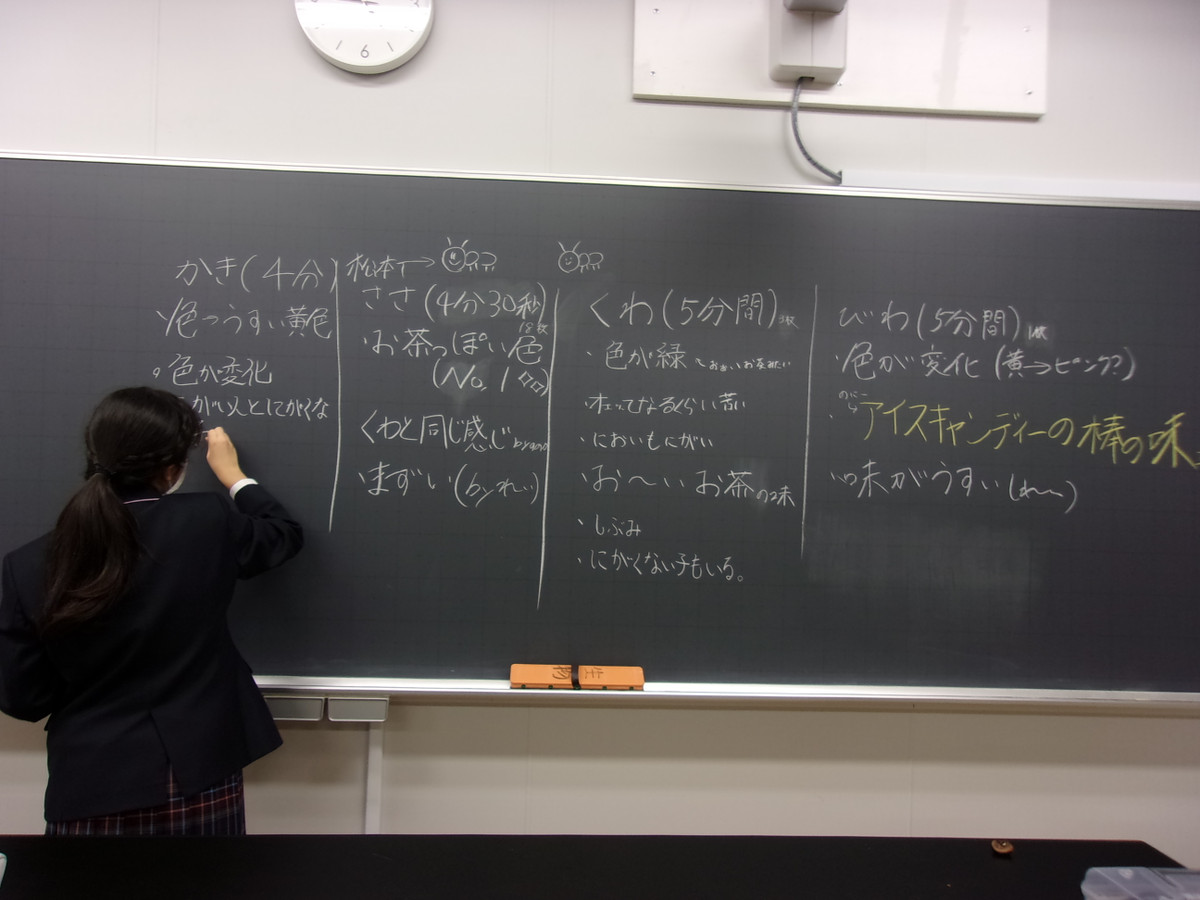 6
かき(4分)
・色→うすい黄色
・色が変化
松本T→
ささ(4分30秒)
18枚
・お茶っぽい色
(No.1
くわと同じ感じ
・まずい(by れい)
くわ(5分間)
・色が緑
・オエッてなるくらい苦い
・においもにがい
・お〜いお茶の味
・しぶみ
・にがくない子もいる。
びわ(5分間)
・色が変化(黄→ピンク?)
・アイスキャンディーの棒の味
・味がうすい
生物